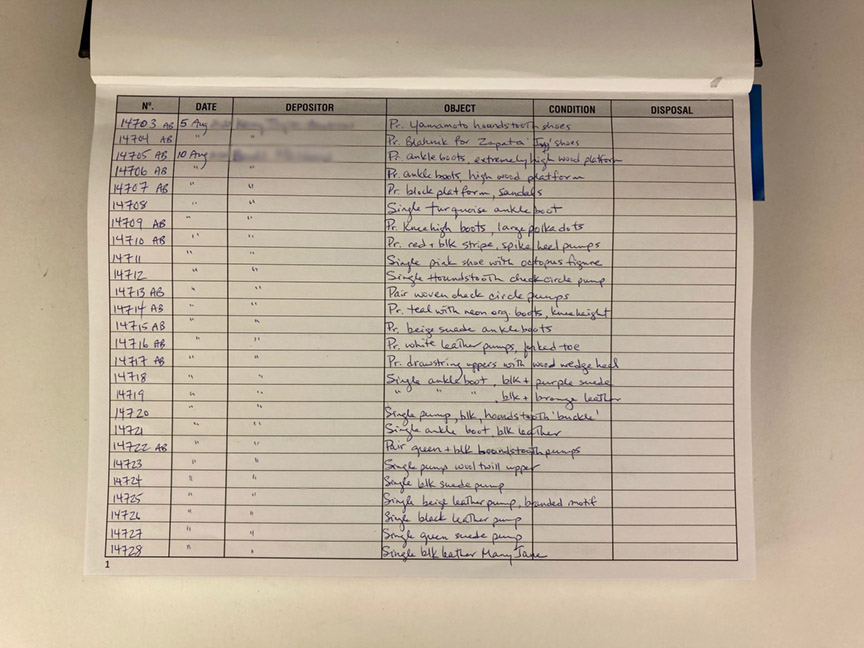 Nº. DATE DEPOSITOR OBJECT CONDITION DISPOSAL
14703 AB 5 Aug Pr. Yamamoto houndstooth shoes
14704 AB " Pr. Blahnik for Zapata 'Ivy' shoes
14705 AB 10 Aug Pr. ankle boots, extremely high wood platform
14706 AB " " Pr. ankle boots, high wood platform
14707 AB " " Pr. block platform, sandals
14708 " " Single turquoise ankle boot
14709 AB " " Pr. Knee high boots, large polka dots
14710 AB " " Pr. red + blk stripe, spike heel pumps
14711 " Single pink shoe with octopus figure
14712 " " Single Houndstooth check circle pump
14713 AB " " Pair woven check circle pumps
14714 AB " " Pr. teal with neon org. boots, knee height
14715 AB " " Pr. beige suede ankle boots
14716 AB " " Pr. white leather pumps, toe
14717 AB " " Pr. drawstring uppers with wood wedge heel
14718 " " Single ankle boot, blk + purple suede
14719 " " " " " , blk + bronze leather
14720 " " Single pump, blk, houndstooth 'buckle'
14721 " " Single ankle boot, blk leather
14722 AB " " Pair green + blk houndstooth pumps
14723 " " Single pump wool twill upper
14724 " " Single blk suede pump
14725 " " Single beige leather pump, branded motif
14726 " " Single black leather pump
14727 " " Single green suede pump
14728 " " Single blk leather Mary Jane
1